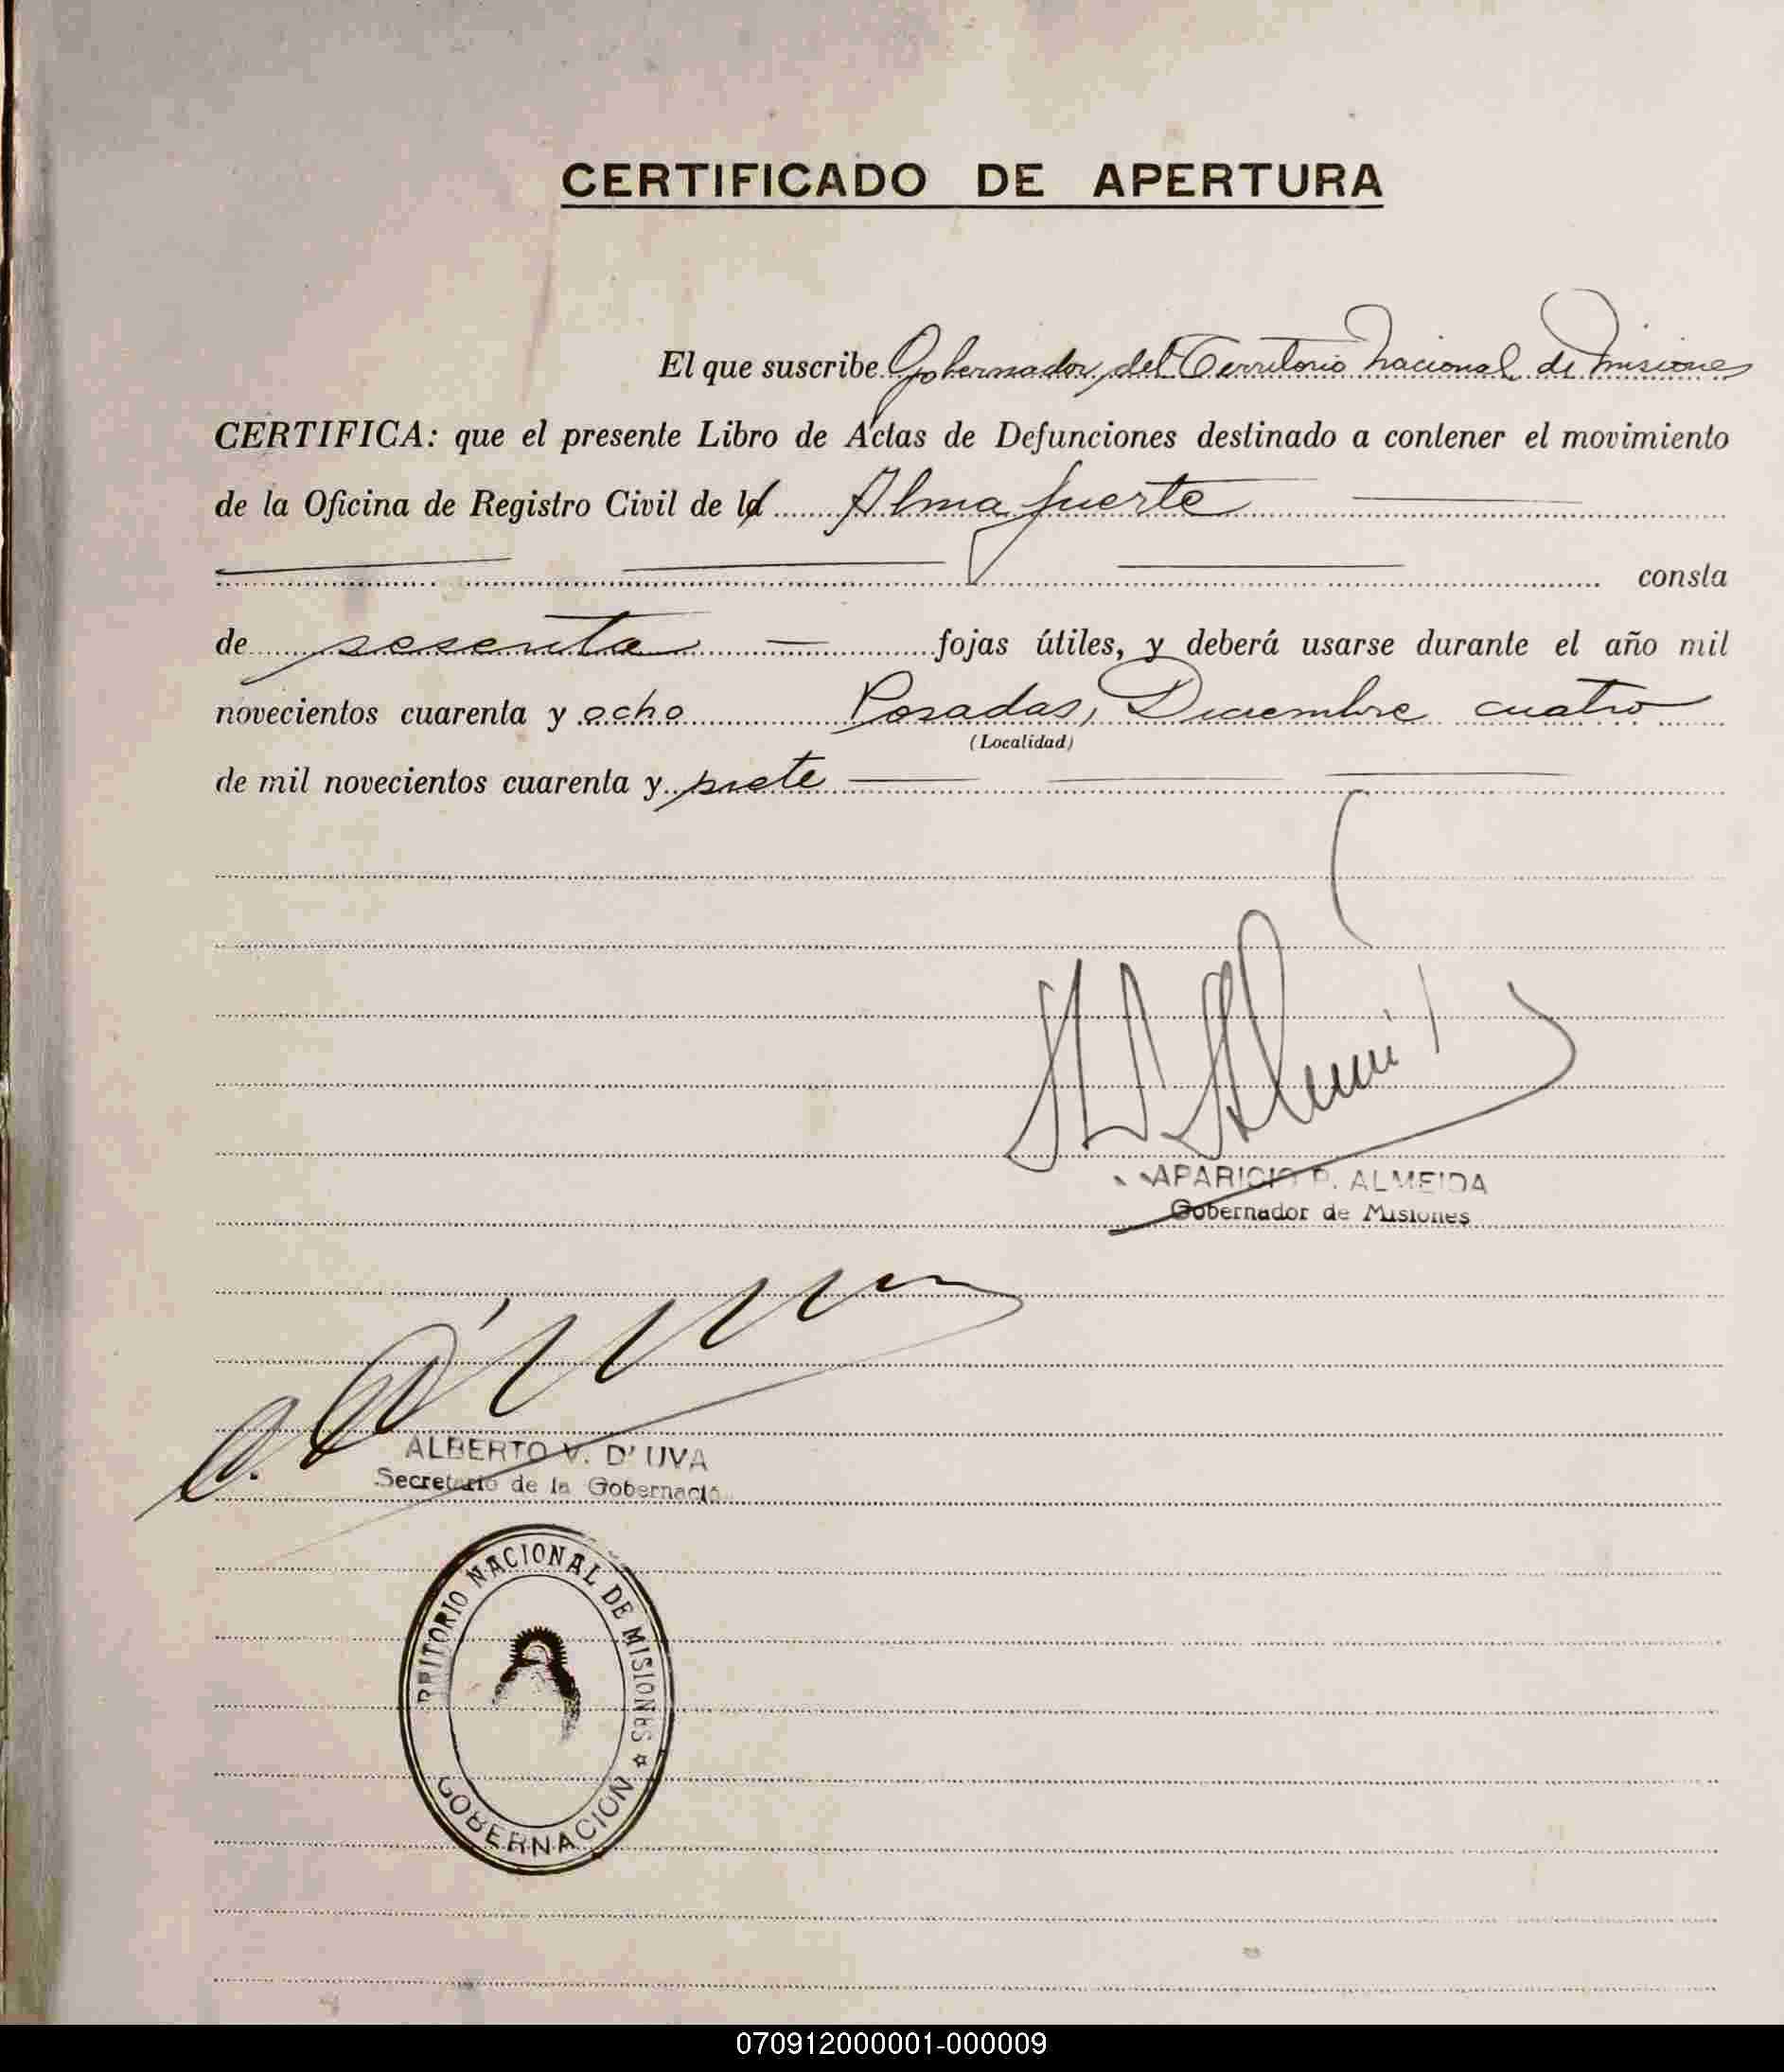 CERTIFICADO DE APERTURA
El que suscribe Gobernador del Territorio Nacional de Misiones
CERTIFICA: que el presente Libro de Actas de Defunciones destinado a contener el movimiento
de la Oficina de Registro Civil de l Almafuerte
consta
de sesenta fojas útiles, y deberá usarse durante el año mil
novecientos cuarenta y ocho Posadas, Diciembre cuatro
(Localidad)
de mil novecientos cuarenta y siete
APARICIO P. ALMEIDA
Gobernador de Misiones
ALBERTO V. D' UVA
Secretario de la Gobernació
RRITORIO NACIONAL DE MISIONES
GOBERNACION
070912000001-000009